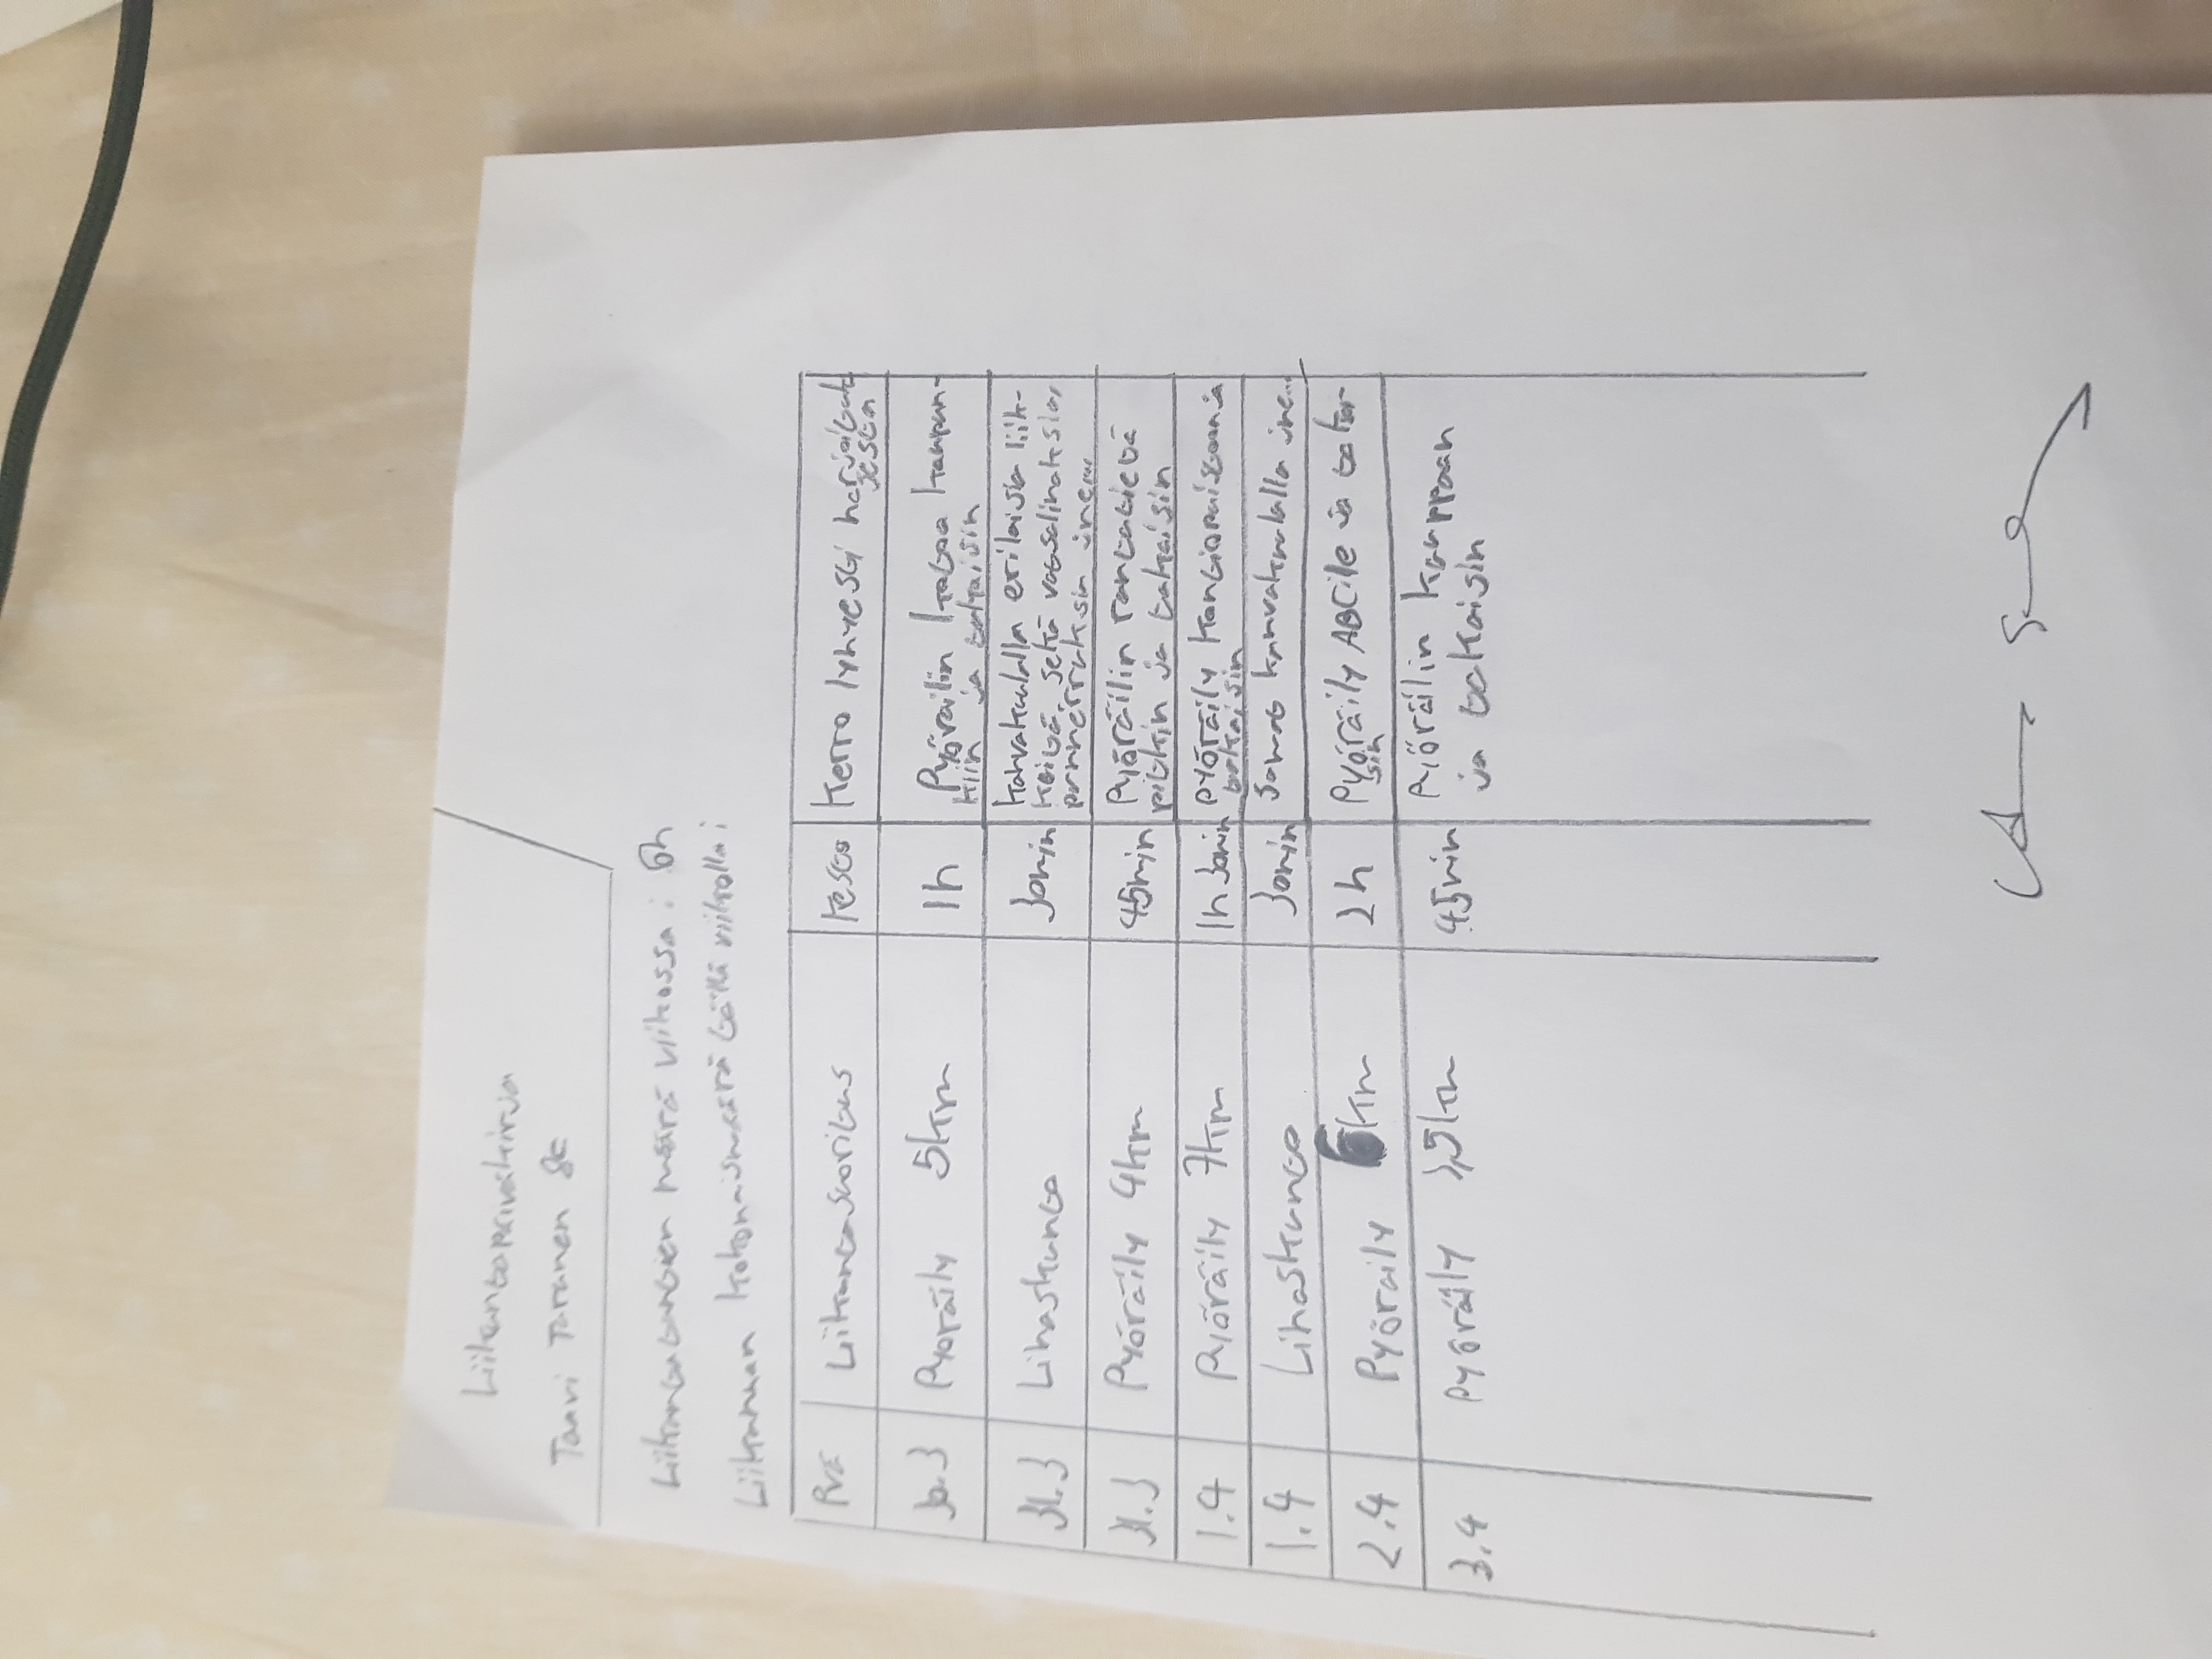 Liikuntapäiväkirja
Taavi Taranen 8c
Liikuntatuntien määrä viikossa: 6h
Liikunnan kokonaismäärä tällä viikolla:
Pvä Liikuntasuoritus kesto Kerro lyhyesti harjoituk
sesta
30.3 Pyöräily 5km 1h Pyöräilin kaupun-
kiin ja takaisin
31.3 Lihaskunto 30min kahvakuulalla erilaisia liik-
keitä sekä vatsalihaksia,
punnerruksia jne...
31.3 Pyöräily 4km 45min Pyöräilin rantatietä
pitkin ja takaisin
1.4 Pyöräily 7km 1h 30min Pyöräily
takaisin
1.4 Lihaskunto 30min Samat kahvakuulalla jne...
2.4 Pyöräily 6km 2h Pyöräily ABCille ja takai-
sin
3.4 Pyöräily 3,5km 45min Pyöräilin kauppaan
ja takaisin